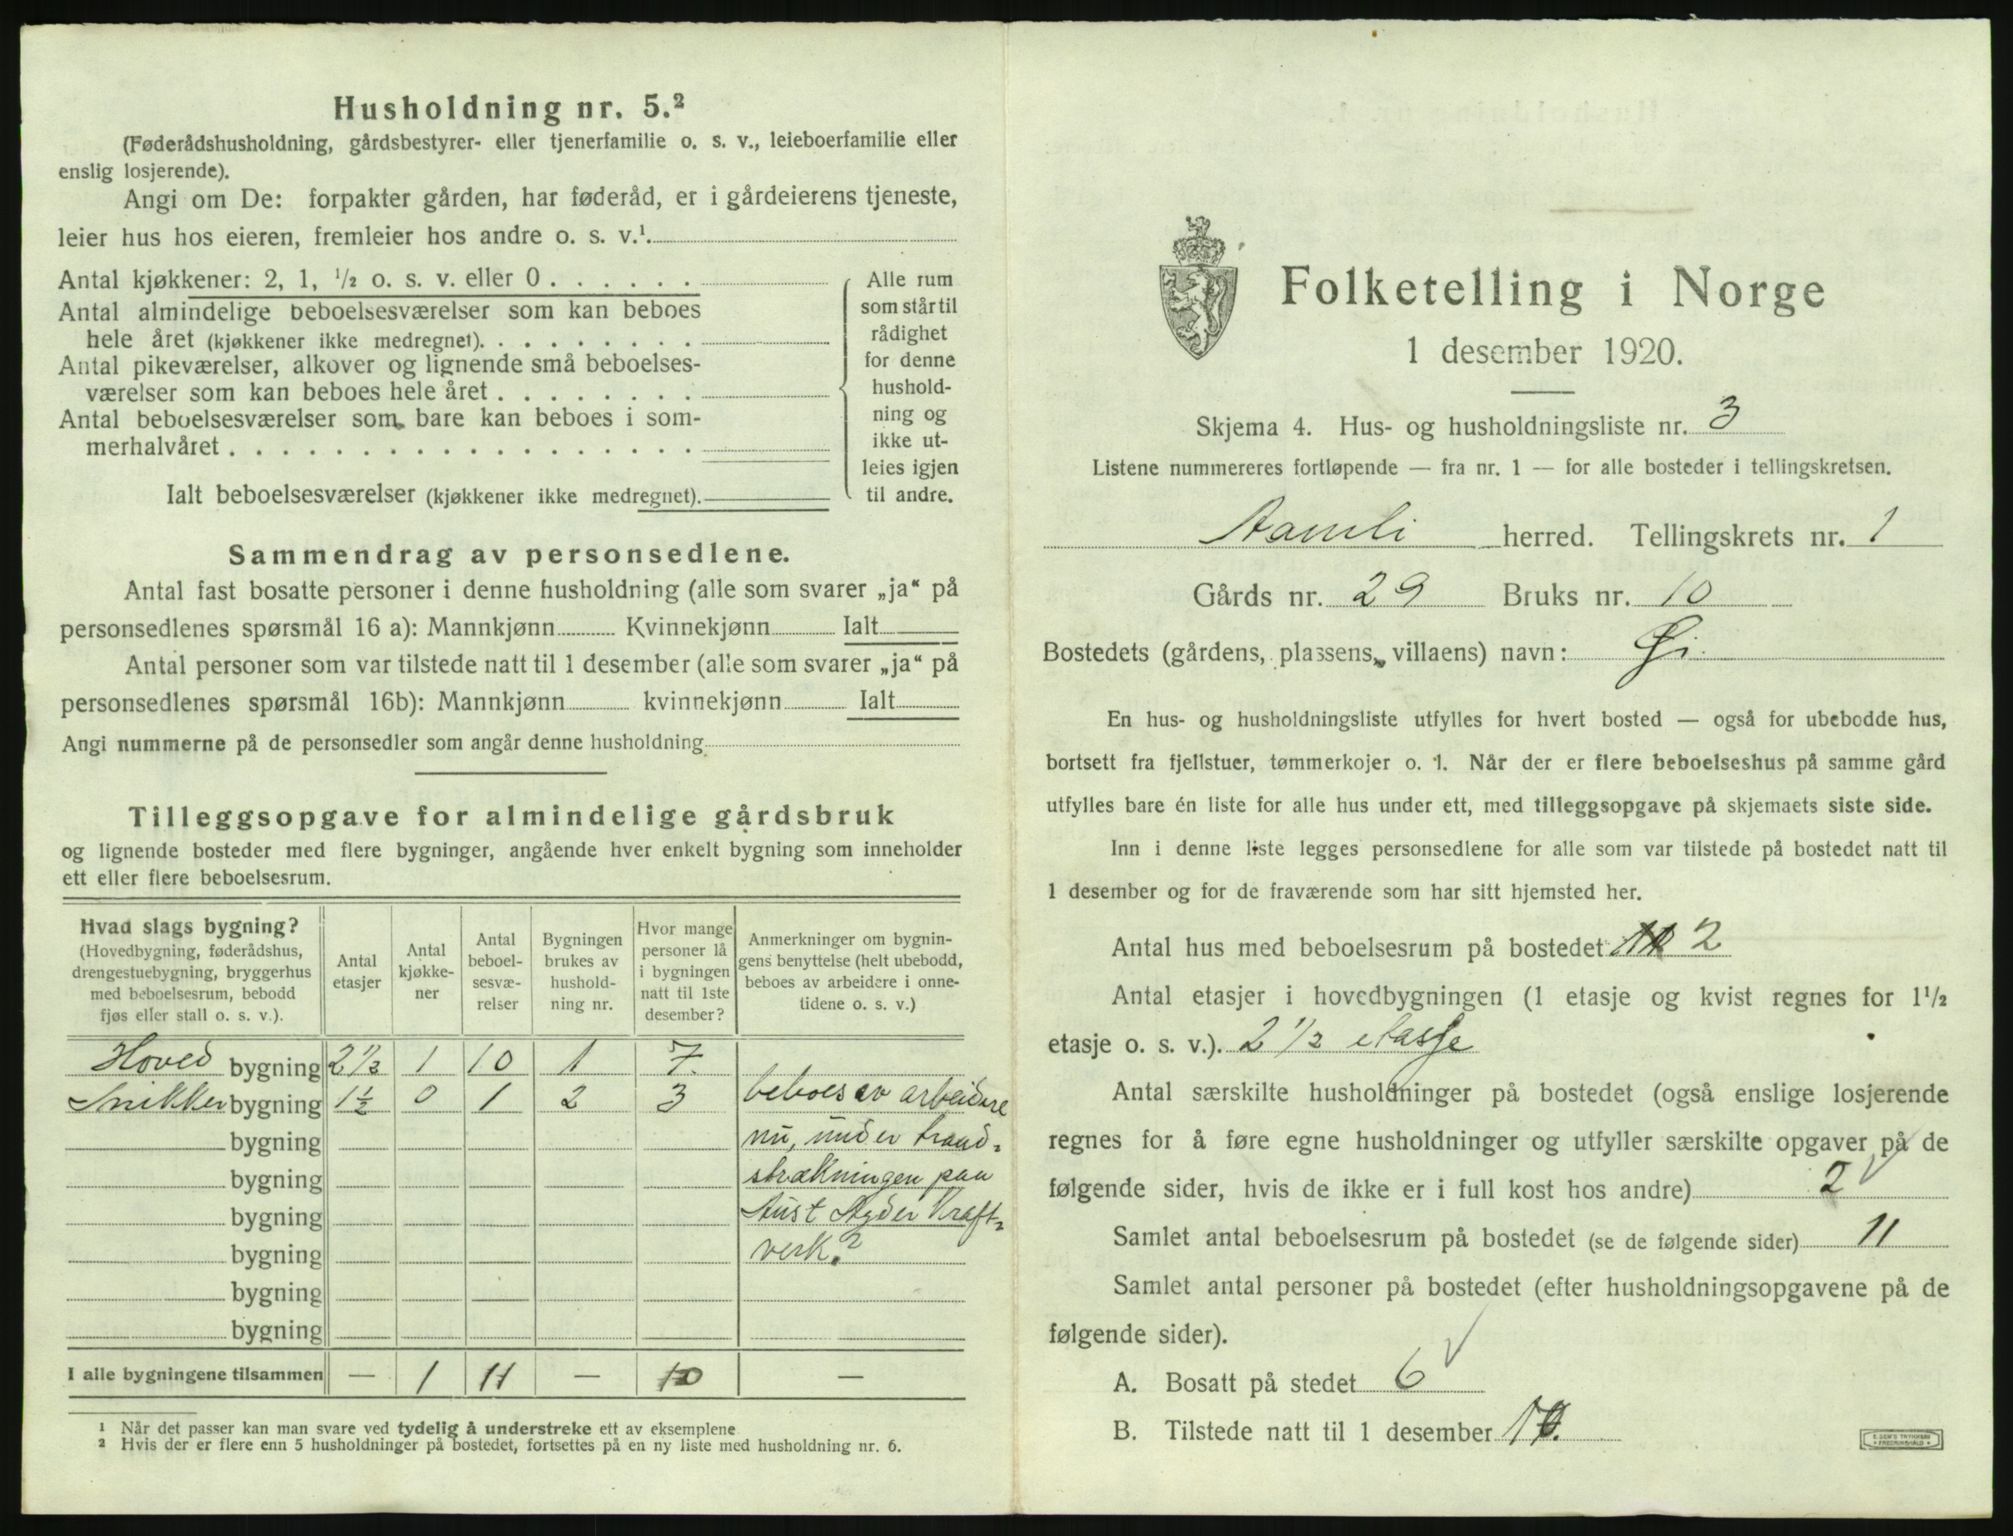 Husholdning nr. 5.²
(Føderådshusholdning, gårdsbestyrer- eller tjenerfamilie o. s. v., leieboerfamilie eller
enslig losjerende).
Angi om De: forpakter gården, har føderåd, er i gårdeierens tjeneste,
leier hus hos eieren, fremleier hos andre o. s. v.¹
Antal kjøkkener: 2, 1, ½ o. s. v. eller 0
Antal almindelige beboelsesværelser som kan beboes
hele året (kjøkkener ikke medregnet).
Antal pikeværelser, alkover og lignende små beboelses-
værelser som kan beboes hele året
Antal beboelsesværelser som bare kan beboes i som-
merhalvåret
Ialt beboelsesværelser (kjøkkener ikke medregnet).
Alle rum
som står til
rådighet
for denne
hushold-
ning og
ikke ut-
leies igjen
til andre.
Sammendrag av personsedlene.
Antal fast bosatte personer i denne husholdning (alle som svarer „ja“ på
personsedlenes spørsmål 16 a): Mannkjønn Kvinnekjønn Ialt
Antal personer som var tilstede natt til 1 desember (alle som svarer „ja“ på
personsedlenes spørsmål 16b): Mannkjønn kvinnekjønn Ialt
Angi nummerne på de personsedler som angår denne husholdning
Tilleggsopgave for almindelige gårdsbruk
og lignende bosteder med flere bygninger, angående hver enkelt bygning som inneholder
ett eller flere beboelsesrum.
Hvad slags bygning?
(Hovedbygning, føderådshus,
drengestuebygning, bryggerhus
med beboelsesrum, bebodd
fjøs eller stall o. s. v.).
Antal
etasjer
Antal
kjøkke-
ner
Antal
beboel-
sesvæ-
relser
Bygningen
brukes av
hushold-
ning nr.
Hvor mange
personer lå
i bygningen
natt til 1ste
desember?
Anmerkninger om bygnin-
gens benyttelse (helt ubebodd,
beboes av arbeidere i onne-
tidene o. s. v.)
Hoved bygning 2 ½ 1 10 1 7.
Snikker bygning 1 ½ 0 1 2 3 beboes av arbeidere
bygning nu, under traad-
bygning strækningen paa
bygning Aust Agder Kraft-
bygning verk.
bygning
bygning
I alle bygningene tilsammen — 1 11 — 10 —
¹ Når det passer kan man svare ved tydelig å understreke ett av eksemplene
² Hvis der er flere enn 5 husholdninger på bostedet, fortsettes på en ny liste med husholdning nr. 6.
Folketelling i Norge
1 desember 1920.
Skjema 4. Hus- og husholdningsliste nr. 3
Listene nummereres fortløpende — fra nr. 1 — for alle bosteder i tellingskretsen.
Aamli herred. Tellingskrets nr. 1
Gårds nr. 29 Bruks nr. 10
Bostedets (gårdens, plassens, villaens) navn: Øi.
En hus- og husholdningsliste utfylles for hvert bosted — også for ubebodde hus,
bortsett fra fjellstuer, tømmerkojer o. l. Når der er flere beboelseshus på samme gård
utfylles bare én liste for alle hus under ett, med tilleggsopgave på skjemaets siste side.
Inn i denne liste legges personsedlene for alle som var tilstede på bostedet natt til
1 desember og for de fraværende som har sitt hjemsted her.
Antal hus med beboelsesrum på bostedet 2
Antal etasjer i hovedbygningen (1 etasje og kvist regnes for 1½
etasje o. s. v.). 2 ½ etasje
Antal særskilte husholdninger på bostedet (også enslige losjerende
regnes for å føre egne husholdninger og utfyller særskilte opgaver på de
følgende sider, hvis de ikke er i full kost hos andre) 2
Samlet antal beboelsesrum på bostedet (se de følgende sider) 11
Samlet antal personer på bostedet (efter husholdningsopgavene på de
følgende sider).
A. Bosatt på stedet 6
B. Tilstede natt til 1 desember 10.